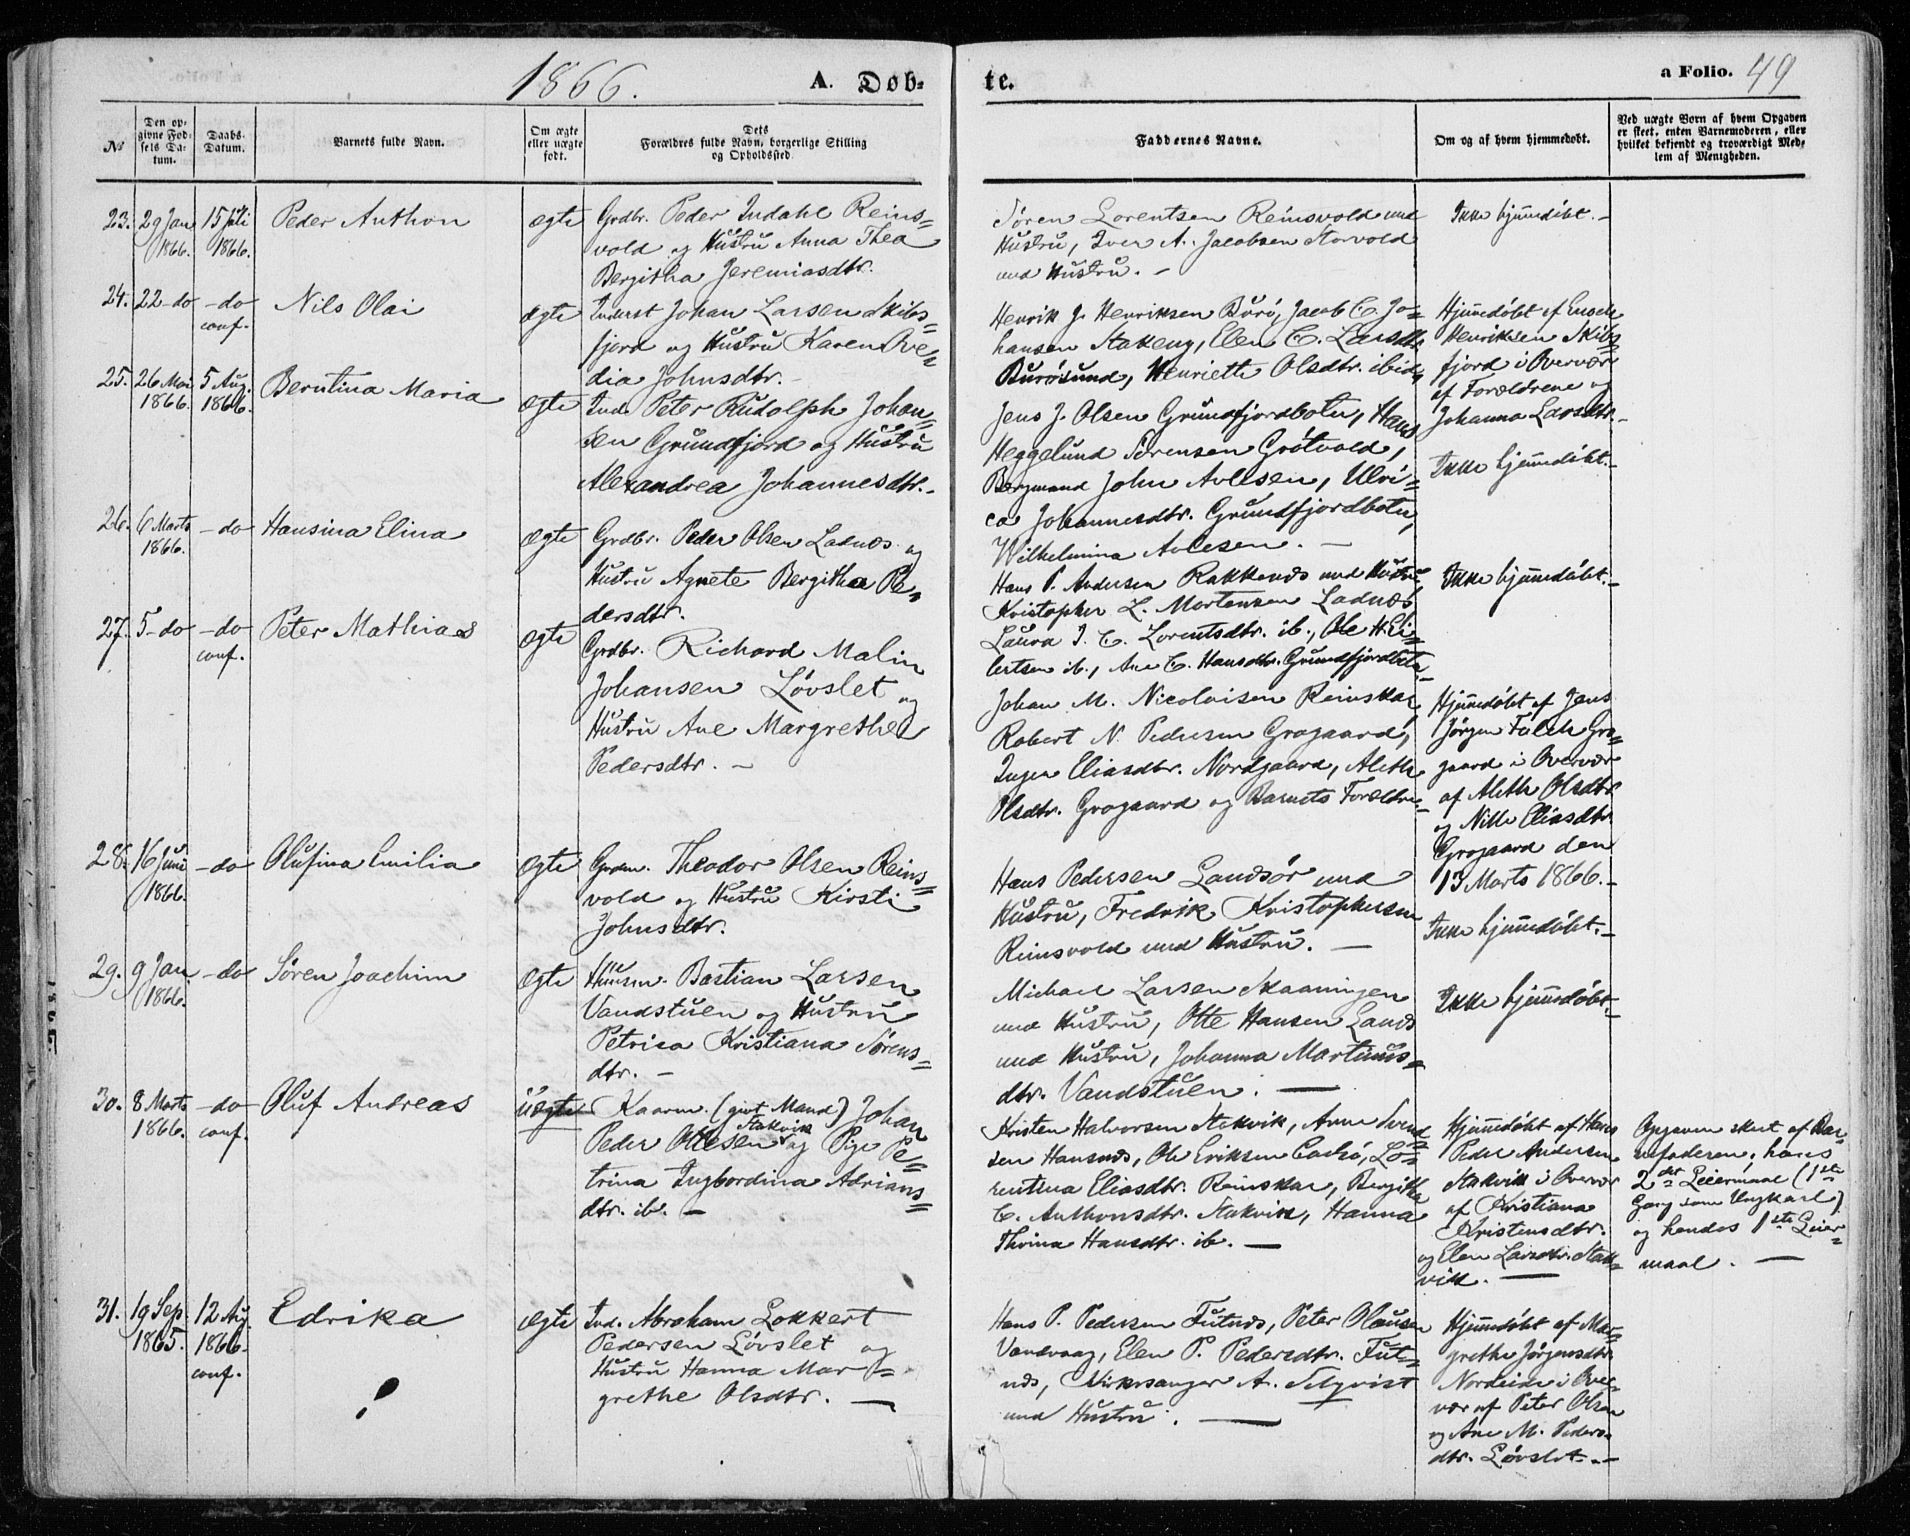 1866. A. Døb= te. a Folio. 49
No
Den op=
givne Fød=
sels Da=
tum.
Daabs=
Datum.
Barnets fulde Navn.
Om ægte
eller uægte
født.
Dets
Forældres fulde Navn, borgerlige Stilling
og Opholdssted.
Faddernes Navne.
Om og af hvem hjemmedøbt.
Ved uægte Born af hvem Opgaven
er skeet, enten Barnemoderen, eller
hvilket bekjendt og troværdigt Med=
lem af Menigheden.
23. 29 Jan
1866.
15 Juli
1866.
Peder Anthon
ægte
Grdbr. Peder Indahl Reins=
vold og Hustru Anna Thea
Bergitha Jeremiasdtr.
Søren Lorentsen Reinsvold med
Hustru, Iver A. Jacobsen Storvold
med Hustru. -
Ikke hjemmedøbt. -
24. 22 - do
- do
conf.
Nils Olai
ægte
Inderst Johan Larsen Skibs=
fjord og Hustru Karen Ove=
dia Johnsdtr. -
Henrik J. Henriksen Burø, Jacob C. Jo=
hansen Stakeng, Elen C. Larsdtr.
Burøsund, Henriette Olsdtr. ibid.
Hjemmedøbt af Enoch
Henriksen Skibs=
fjord i Overvær
af Forældrene og
Johanna Larsdtr. -
25. 26 Mai
1866.
5 Aug.
1866.
Berntina Maria
ægte
Ind. Peter Rudolph Johan=
sen Grundfjord og Hustru
Alexandrea Johannesdtr. -
Jens J. Olsen Grundfjordbotn, Hans
Heggelund Sørensen Grøtvold,
Bergmand John Avlesen, Ulri=
ca Johannesdtr. Grundfjordbotn,
Wilhelmina Avlesen. -
Ikke hjemmedøbt. -
26. 6 Marts
1866.
- do
Hansina Elina
ægte
Grdbr. Peder Olsen Ladnæs og
Hustru Agnete Bergitha Pe=
dersdtr.
Hans P. Andersen Rakkenæs med Hustru
Kristopher L. Mortensen Ladnæs,
Laura J. C. Lorentsdtr. ib., Ole H. Ei=
lertsen ib., Ane C. Hansdtr. Grundfjordbotn
Ikke hjemmedøbt. -
27. 5 - do
- do
conf.
Peter Mathias
ægte
Grdbr. Richard Malin
Johansen Løvslet og
Hustru Ane Margrethe
Pedersdtr. -
Johan M. Nicolaisen Reinskar
Robert N. Pedersen Grogaard,
Inger Eliasdtr. Nordgaard, Aleth
Olsdtr. Grogaard og Barnets Forældre. -
Hjemmedøbt af Jens
Jørgen Falch Gro=
gaard i Overvær
af Aleth Olsdtr.
og Nille Eliasdtr.
Grogaard den
13 Marts 1866. -
28. 16 Juni
1866.
- do
Olufina Emilia
ægte
Grdm. Theodor Olsen Reins=
vold og Hustru Kirsti
Johnsdtr.
Hans Pedersen Sandsør med
Hustru, Fredrik Kristophersen
Reinsvold med Hustru. -
Ikke hjemmedøbt. -
29. 9 Jan
1866.
- do
Søren Joachim
ægte
Huusm. Bastian Larsen
Vandstuen og Hustru
Petrica Kristiana Sørens=
dtr. -
Michael Larsen Skaaningen
med Hustru, Otte Hansen Sands
med Hustru, Johanna Martinus=
dtr. Vandstuen. -
Ikke hjemmedøbt. -
30. 8 Marts
1866.
- do
conf.
Oluf Andreas
uægte
Kaarm. (givt Mand) Johan
Peder Ottesen Stakvik og Pige Pe=
trina Ingbordina Adrians=
dtr. ib. -
Kristen Halvorsen Stakvik, Arne Svend=
sen Hansnæs, Ole Eriksen Carlsø, Lo=
rentina Eliasdtr. Reinskar, Bergitha
C. Anthonsdtr. Stakvik, Hanna
Thorina Hansdtr. ib. -
Hjemmedøbt af Hans
Peder Andersen
Stakvik i Overvær
af Kristiana
Kristensdtr.
og Elen Larsdtr. Stak=
vik. -
Opgaven skeet af Bar=
nefaderen; hans
2det Leiermaal (1ste
Gang som Ungkarl)
og hendes 1ste Leier=
maal. -
31. 19 Sep.
1865.
12 Aug.
1866.
conf.
Edrika
ægte
Ind. Abraham Lokkert
Pedersen Løvslet og
Hustru Hanna Mar=
grethe Olsdtr. -
Hans P. Pedersen Futnæs, Peter Olausen
Vandvaag, Elen P. Pedersdtr. Fut=
næs, Kirkesanger A. Selqvist
med Hustru. -
Hjemmedøbt af Mar=
grethe Jørgensdtr.
Nordeide i Over=
vær af Peter Olsen
og Ane M. Peders=
dtr. Løvslet. -